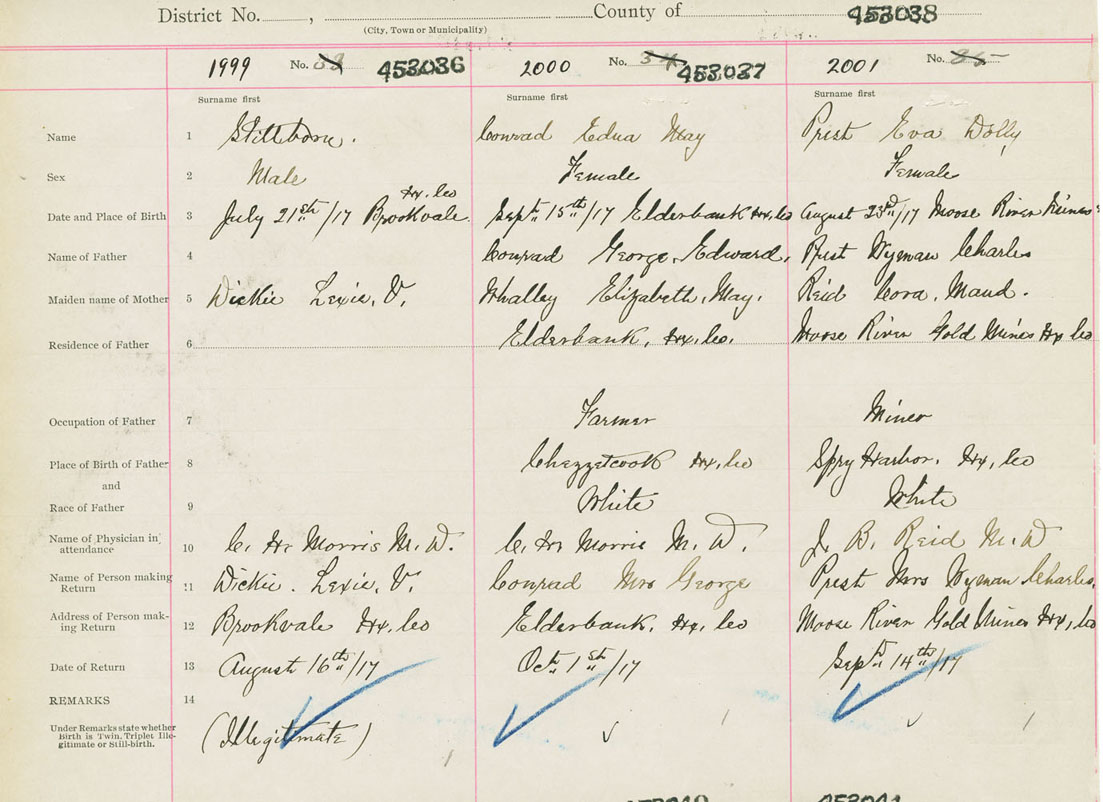 District No. , County of 453038
(City, Town or Municipality)
1999 No. 453036 2000 No. 34 453037 2001 No. 35
Surname first Surname first Surname first
Name 1 Stillborn. Conrad Edna May Prest Eva Dolly
Sex 2 Male Female Female
Hx. Co
Date and Place of Birth 3 July 21st/17 Brookvale Sept 15th/17 Elderbank Hx. Co August 23rd/17 Moose River Mines
Name of Father 4 Conrad George, Edward, Prest Wyman Charles
Maiden name of Mother 5 Dickie Lexie, V. Whalley Elizabeth, May. Reid Cora, Maud.
Residence of Father 6 Elderbank, Hx. Co. Moose River Gold Mines Hx Co
Occupation of Father 7 Farmer Miner
Place of Birth of Father 8 Chezzetcook Hx, Co Spry Harbor, Hx, Co
and
Race of Father 9 White White
Name of Physician in
attendance 10 C. H. Morris M. D. C. H. Morris M. D. J. B. Reid M. D
Name of Person making
Return 11 Dickie. Lexie, V. Conrad Mrs George Prest Mrs Wyman Charles,
Address of Person mak-
ing Return 12 Brookvale Hx, Co Elderbank, Hx, Co Moose River Gold Mines Hx, Co
Date of Return 13 August 16th/17 Oct 1st/17 Sept 14th/17
REMARKS 14
Under Remarks state whether
Birth is Twin, Triplet Ille-
gitimate or Still-birth. (Illegitimate)